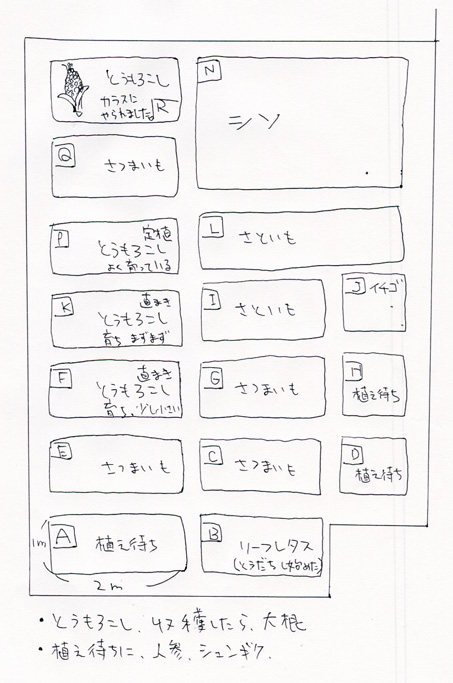 とうもろこし
カラスに
やられました
R
N
シソ
Q
さつまいも
P
定植
とうもろこし
よく育っている
L
さといも
K
直まき
とうもろこし
育ち まずまず
I
さといも
J
イチゴ
F
直まき
とうもろこし
育ち、少し小さい
G
さつまいも
H
植え待ち
E
さつまいも
C
さつまいも
D
植え待ち
A
植え待ち
1m
2m
B
リーフレタス
(とうだち し始めた)
・とうもろこし、収穫したら、大根
・植え待ちに、人参、シュンギク.